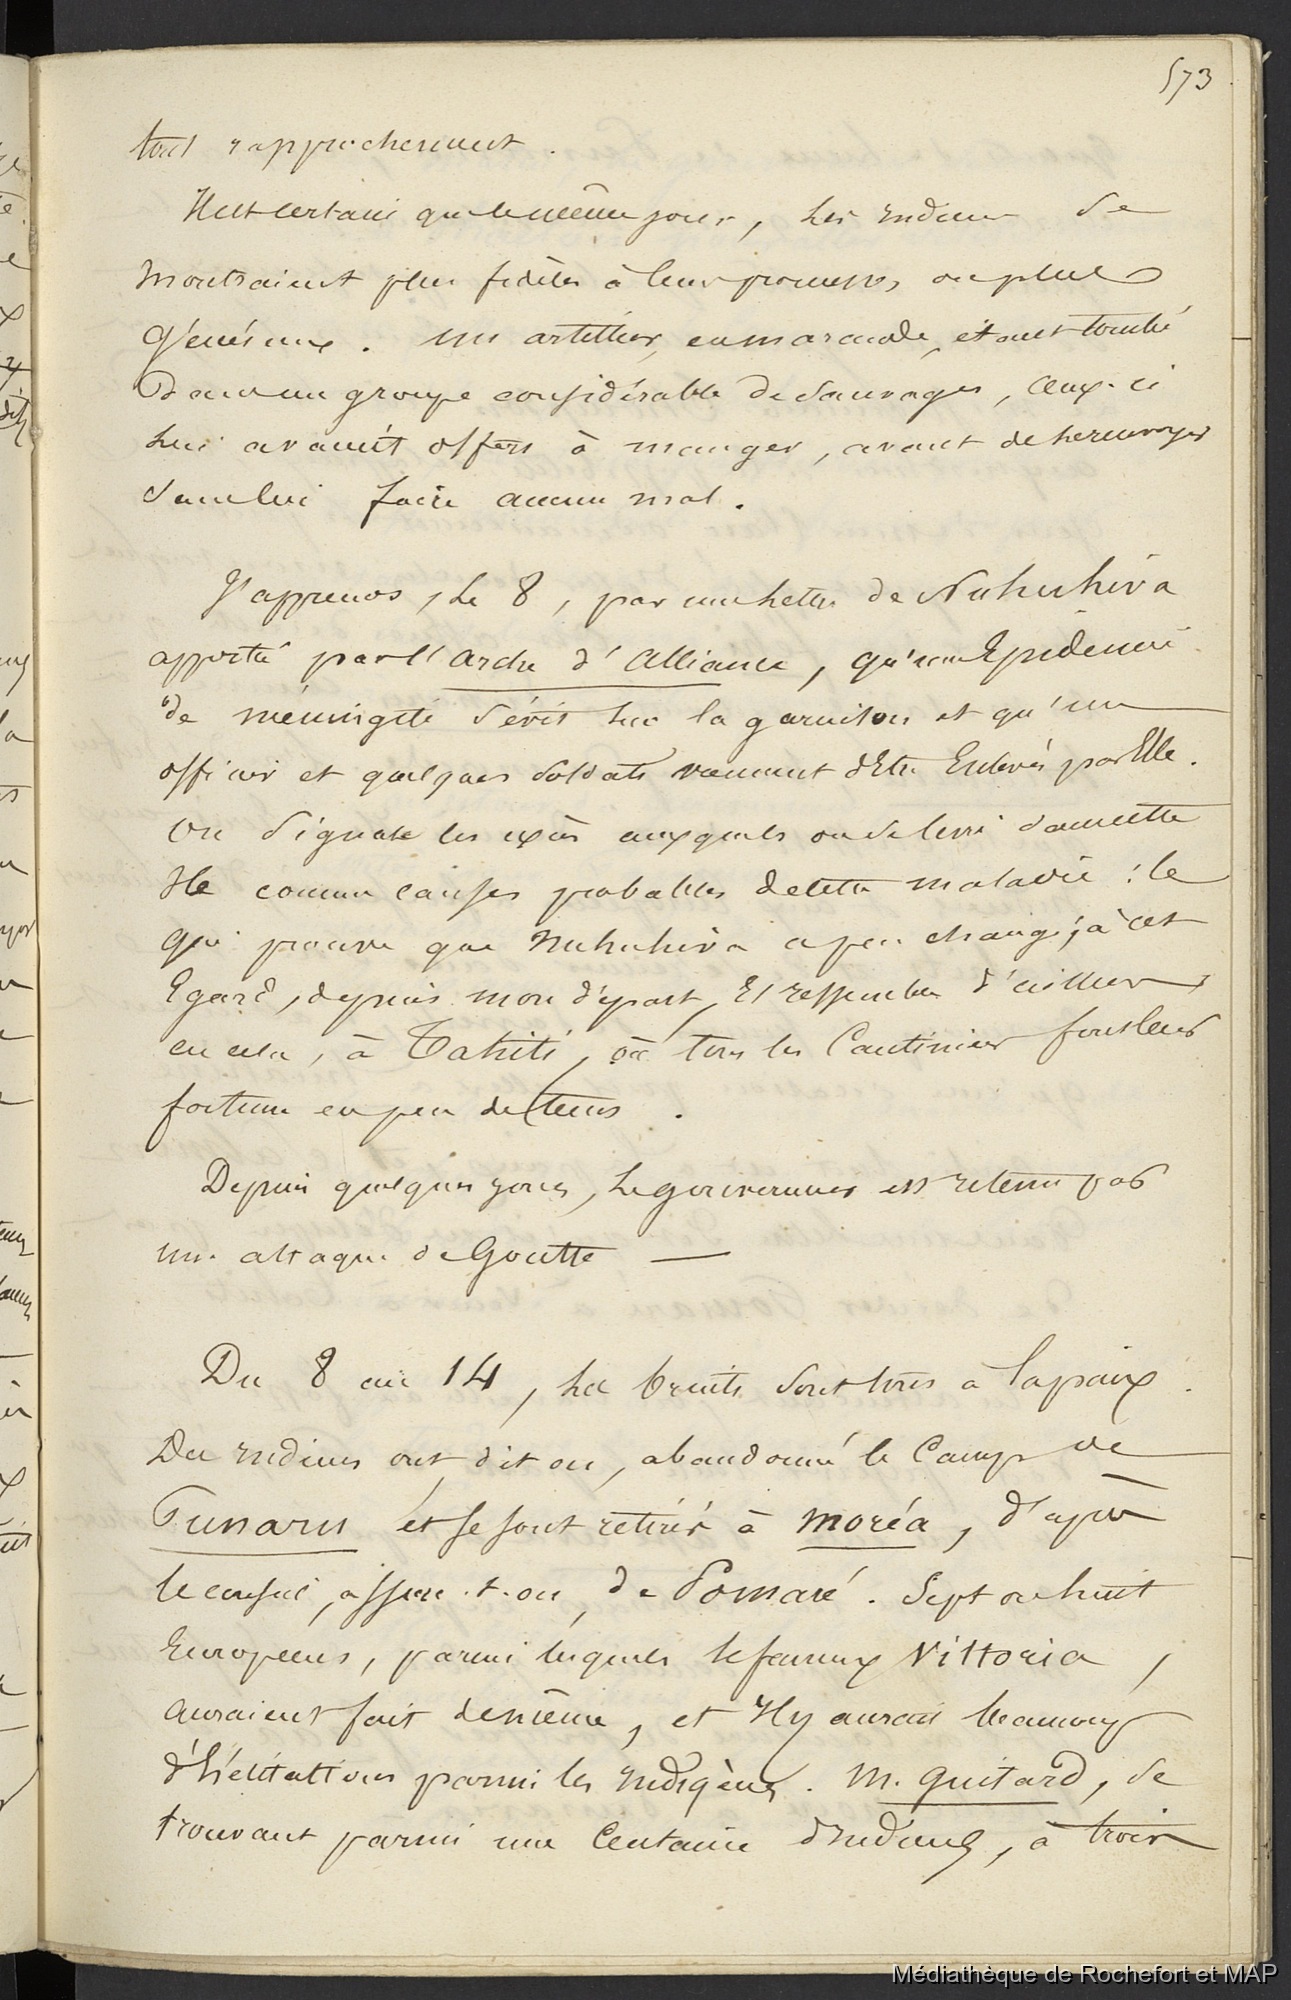 573
tout rapprochement.
Il est certain que le même jour, les Indiens se
montraient plus fidèles à leur promesse, ou plus
généreux. Un artilleur, en maraude, étant tombé
dans un groupe considérable de sauvages, ceux-ci
lui avaient offert à manger, avant de le renvoyer
sans lui faire aucun mal.
J'apprends, le 8, par une lettre de Nuhuhiva
apportée par l'arche d'alliance, qu'une Epidémie
de méningite sévit sur la garnison et qu'un
officier et quelques soldats viennent d'Etre Enlevés par Elle.
On signale les excès auxquels on se livre dans cette
Ile comme causes probables de cette maladie : ce
qui prouve que Nuhuhiva a peu changé, à cet
Egard, depuis mon départ, Et ressemble d'ailleurs
en cela, à Tahiti, où tous les Cantiniers font leur
fortune en peu de tems.
Depuis quelques jours, le gouverneur est retenu par
une attaque de Goutte —
Du 8 au 14, les bruits sont tous à la paix.
Des Indiens ont dit on, abandonné le Camp de
Punaru et se sont retirés à Moréa, d'après
le conseil, assure-t-on, de Pomaré. Sept ou huit
Européens, parmi lesquels le fameux Vittoria,
auraient fait de même, et Il y aurait beaucoup
d'hésitations parmi les Indigènes. M. Guitard, se
trouvant parmi une Centaine d'Indiens, à trois
Médiathèque de Rochefort et MAP